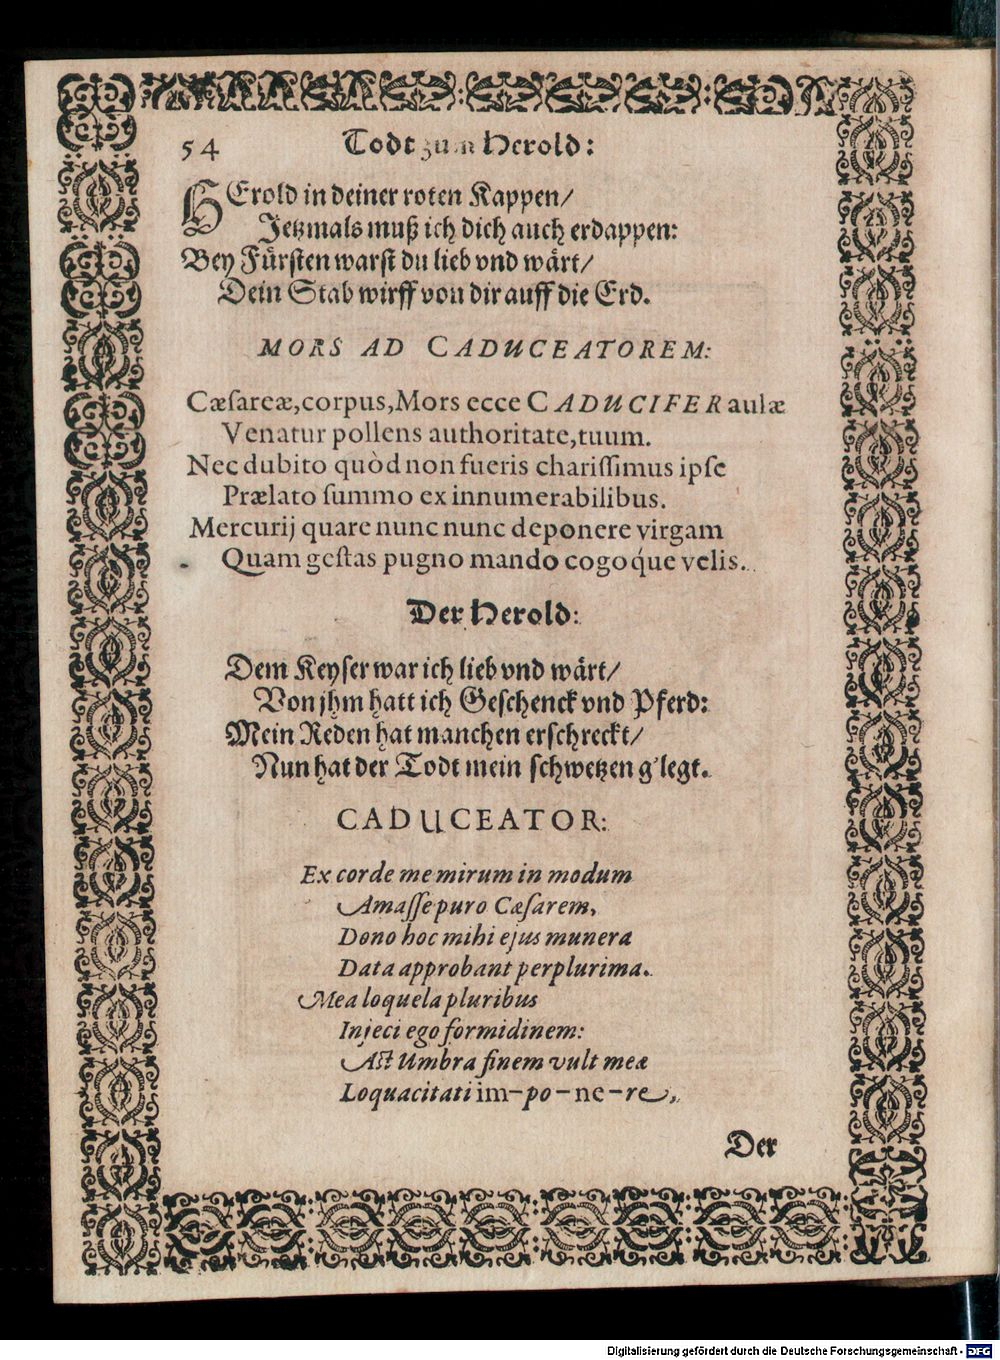 54 Todt zum Herold:
HErold in deiner roten Kappen/
Jetzmals muß ich dich auch erdappen:
Bey Fürsten warst du lieb vnd wärt/
Dein Stab wirff von dir auff die Erd.
MORS AD CADUCEATOREM:
Cæſareæ, corpus, Mors ecce CADUCIFER aulæ
Venatur pollens authoritate, tuum.
Nec dubito quòd non fueris chariſſimus ipſe
Prælato ſummo ex innumerabilibus.
Mercurij quare nunc nunc deponere virgam
Quam geſtas pugno mando cogoq́ue velis.
Der Herold:
Dem Keyſer war ich lieb vnd wärt/
Von jhm hatt ich Geſchenck vnd Pferd:
Mein Reden hat manchen erſchreckt/
Nun hat der Todt mein ſchwetzen g'legt.
CADUCEATOR:
Ex corde me mirum in modum
Amaſſe puro Cæſarem,
Dono hoc mihi ejus munera
Data approbant perplurima.
Mea loquela pluribus
Injeci ego formidinem:
Aſt Umbra finem vult meæ
Loquacitati im-po-ne-re.
Der
Digitalisierung gefördert durch die Deutsche Forschungsgemeinschaft - DFG